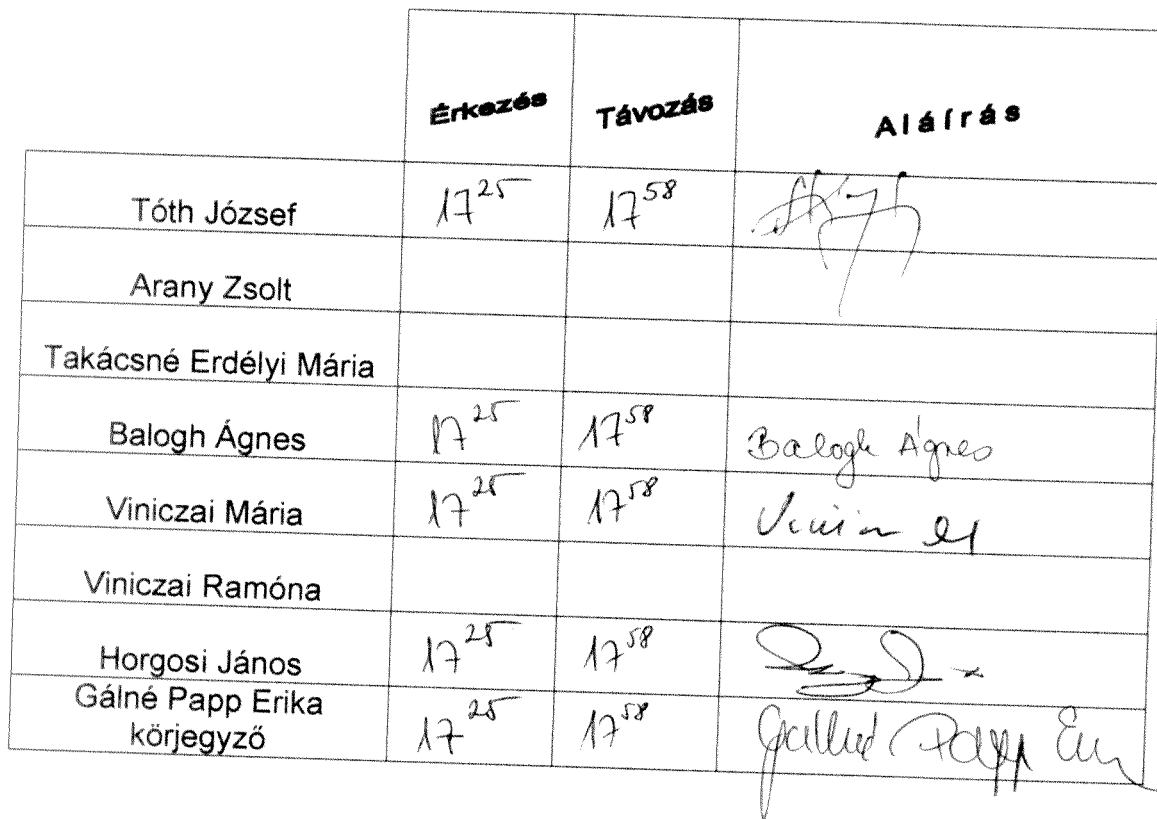 Érkezés Távozás Aláírás
Tóth József 17²⁵ 17⁵⁸
Arany Zsolt
Takácsné Erdélyi Mária
Balogh Ágnes 17²⁵ 17⁵⁸ Balogh Ágnes
Viniczai Mária 17²⁵ 17⁵⁸
Viniczai Ramóna
Horgosi János 17²⁵ 17⁵⁸
Gálné Papp Erika
körjegyző 17²⁵ 17⁵⁸ Gálné Papp Erika